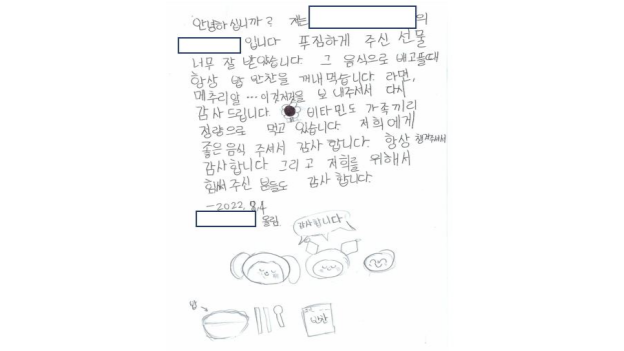 안녕하십니까? 저는 의
입니다 푸짐하게 주신 선물
너무 잘 받았습니다. 그 음식으로 배고플때
항상 밥 반찬을 꺼내 먹습니다. 라면,
메추리알 … 이것저것을 보내주셔서 다시
감사드립니다. 비타민도 가족끼리
정량으로 먹고 있습니다. 저희에게
좋은 음식 주셔서 감사합니다. 항상 챙겨주셔서
감사합니다. 그리고 저희를 위해서
힘써 주신 분들도 감사합니다.
-2022. 4
올림
감사합니다
밥
반찬